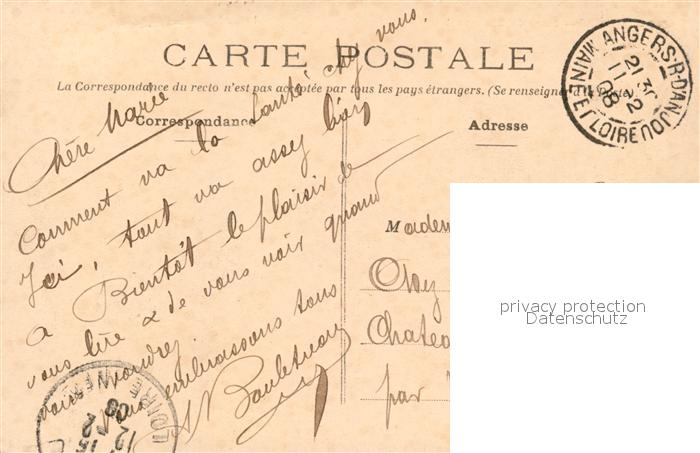 CARTE POSTALE
La Correspondance du recto n'est pas acceptée par tous les pays étrangers. (Se renseigner à la Poste)
Correspondance
Adresse
Chère Marie
Comment va la santé chez vous,
Ici, tout va assez bien
a Bientôt le plaisir de
vous lire & de vous voir quand
vous voudrez.
Nous embrassons tous
ANGERS-R-D'ANJOU
MAINE ET LOIRE
21
11
08
Madem
Chatea
par
privacy protection
Datenschutz
LOIRE
12
08
15